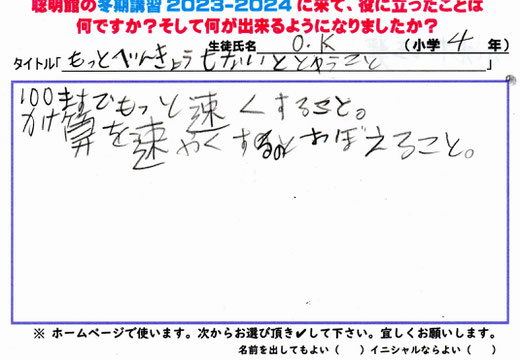 聡明館の冬期講習2023-2024に来て、役に立ったことは
何ですか？そして何が出来るようになりましたか？
生徒氏名 O.K （小学 4 年）
タイトル「もっとべんきょうしないととゆうこと」
100ますでもっと速くすること。
かけ算を速やくするのとおぼえること。
※ ホームページで使います。次からお選び頂き✔して下さい。宜しくお願いします。
名前を出してもよい（　）イニシャルならよい（　）